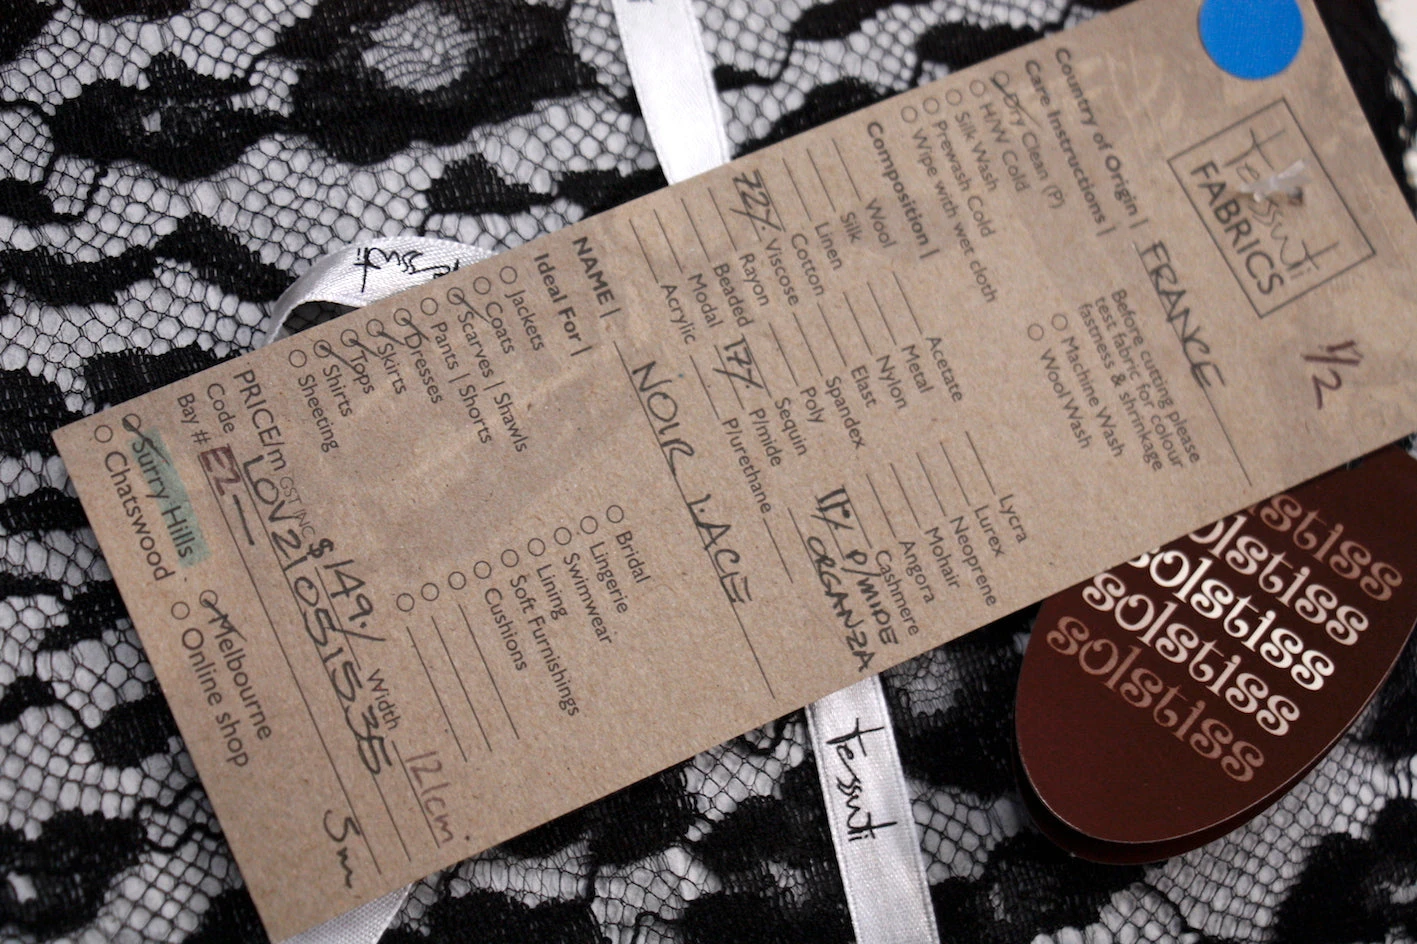 tessuti
FABRICS
1/2
Country of Origin | FRANCE
Care Instructions |
Dry Clean (P)
H/W Cold
Silk Wash
Prewash Cold
Wipe with wet cloth
Before cutting please
test fabric for colour
fastness & shrinkage
Machine Wash
Wool Wash
Composition |
Wool
Silk
Linen
Cotton
72% Viscose
Rayon
Beaded
Modal
Acrylic
Acetate
Metal
Nylon
Elast
Spandex
Poly
Sequin
17% P/mide
P/urethane
Lycra
Lurex
Neoprene
Mohair
Angora
Cashmere
11% P/MIDE
ORGANZA
NAME | NOIR LACE
Ideal For |
Jackets
Coats
Scarves | Shawls
Pants | Shorts
Dresses
Skirts
Tops
Shirts
Sheeting
Bridal
Lingerie
Swimwear
Lining
Soft Furnishings
Cushions
PRICE/m GST INC $149./ Width 121cm
Code LOV21051535
Bay # E2 — 5m
Surry Hills
Chatswood
Melbourne
Online shop
tessuti
tessuti
tessuti
solstiss
solstiss
solstiss
solstiss
solstiss